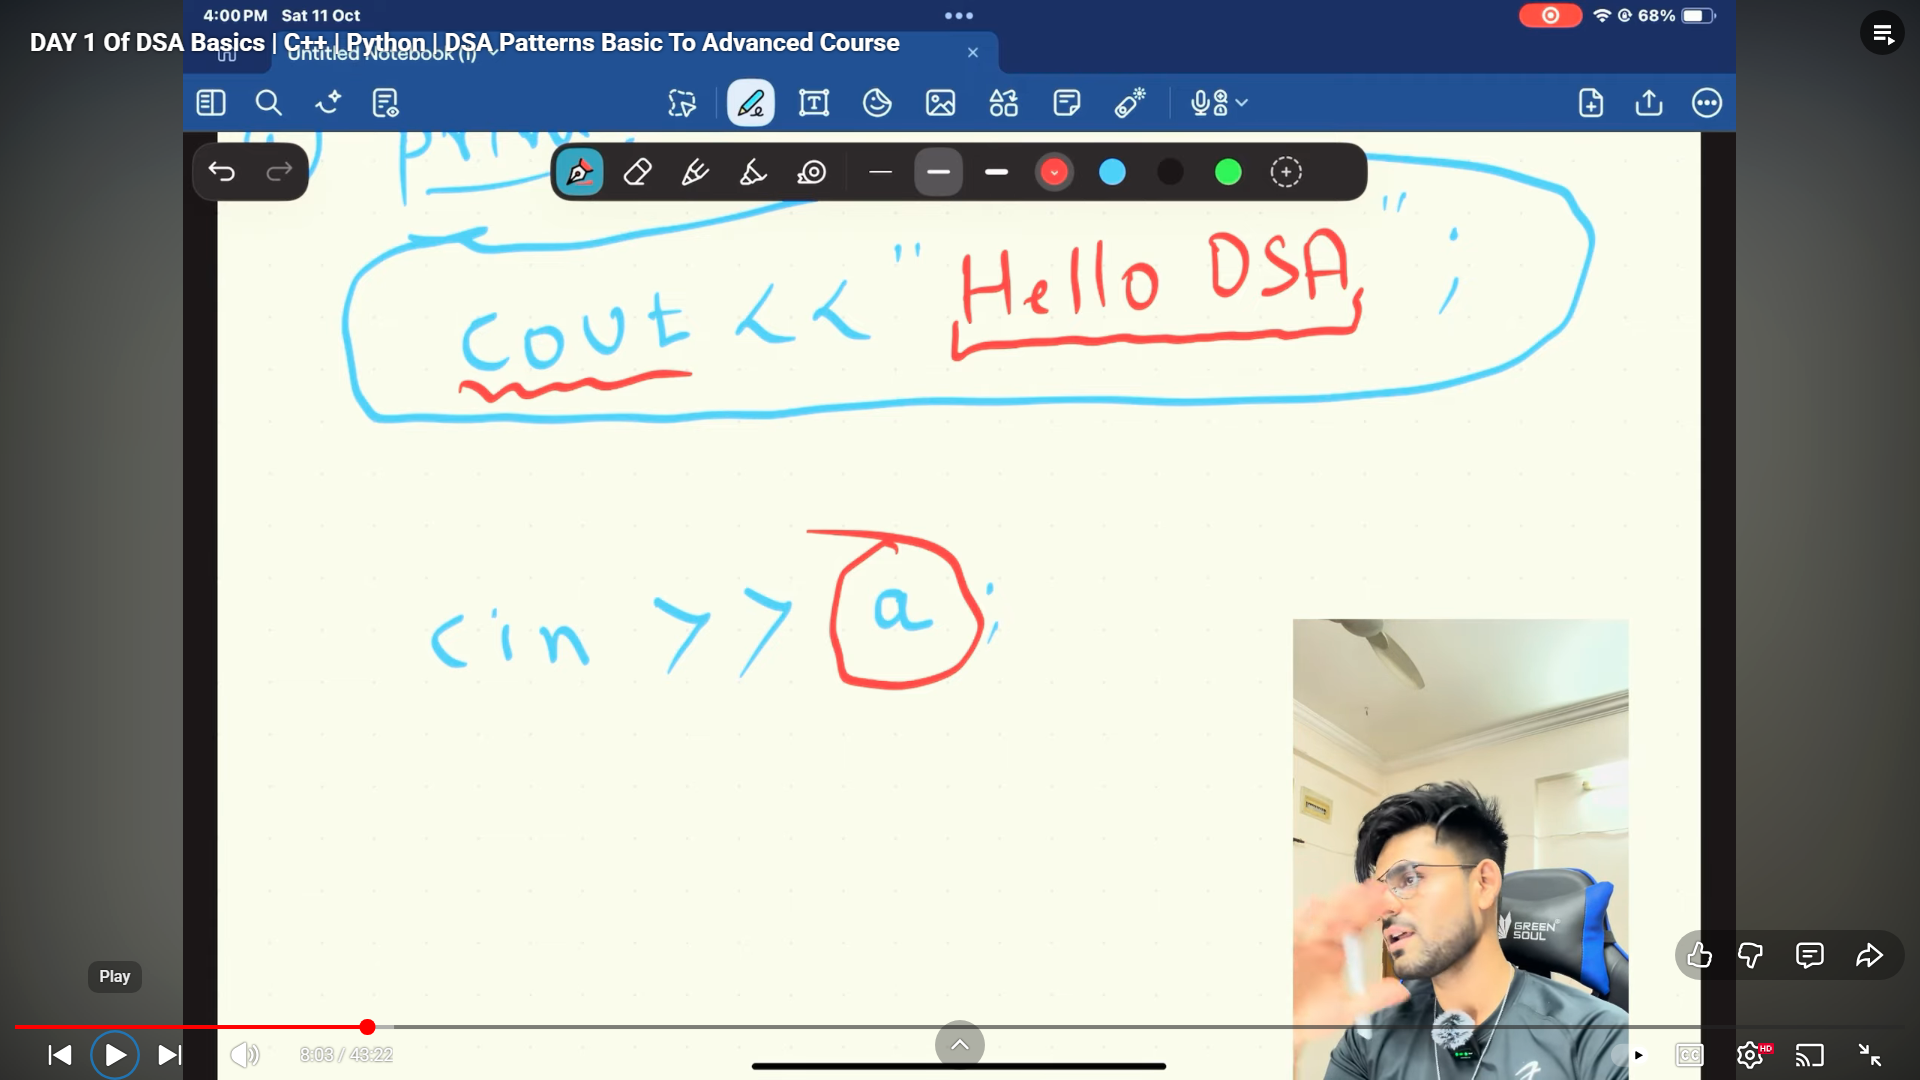 4:00 PM Sat 11 Oct
68%
DAY 1 Of DSA Basics | C++ | Python | DSA Patterns Basic To Advanced Course
Untitled Notebook (1)
print
cout << "Hello DSA";
cin >> a;
GREEN SOUL
Play
8:03 / 43:22
CC
HD